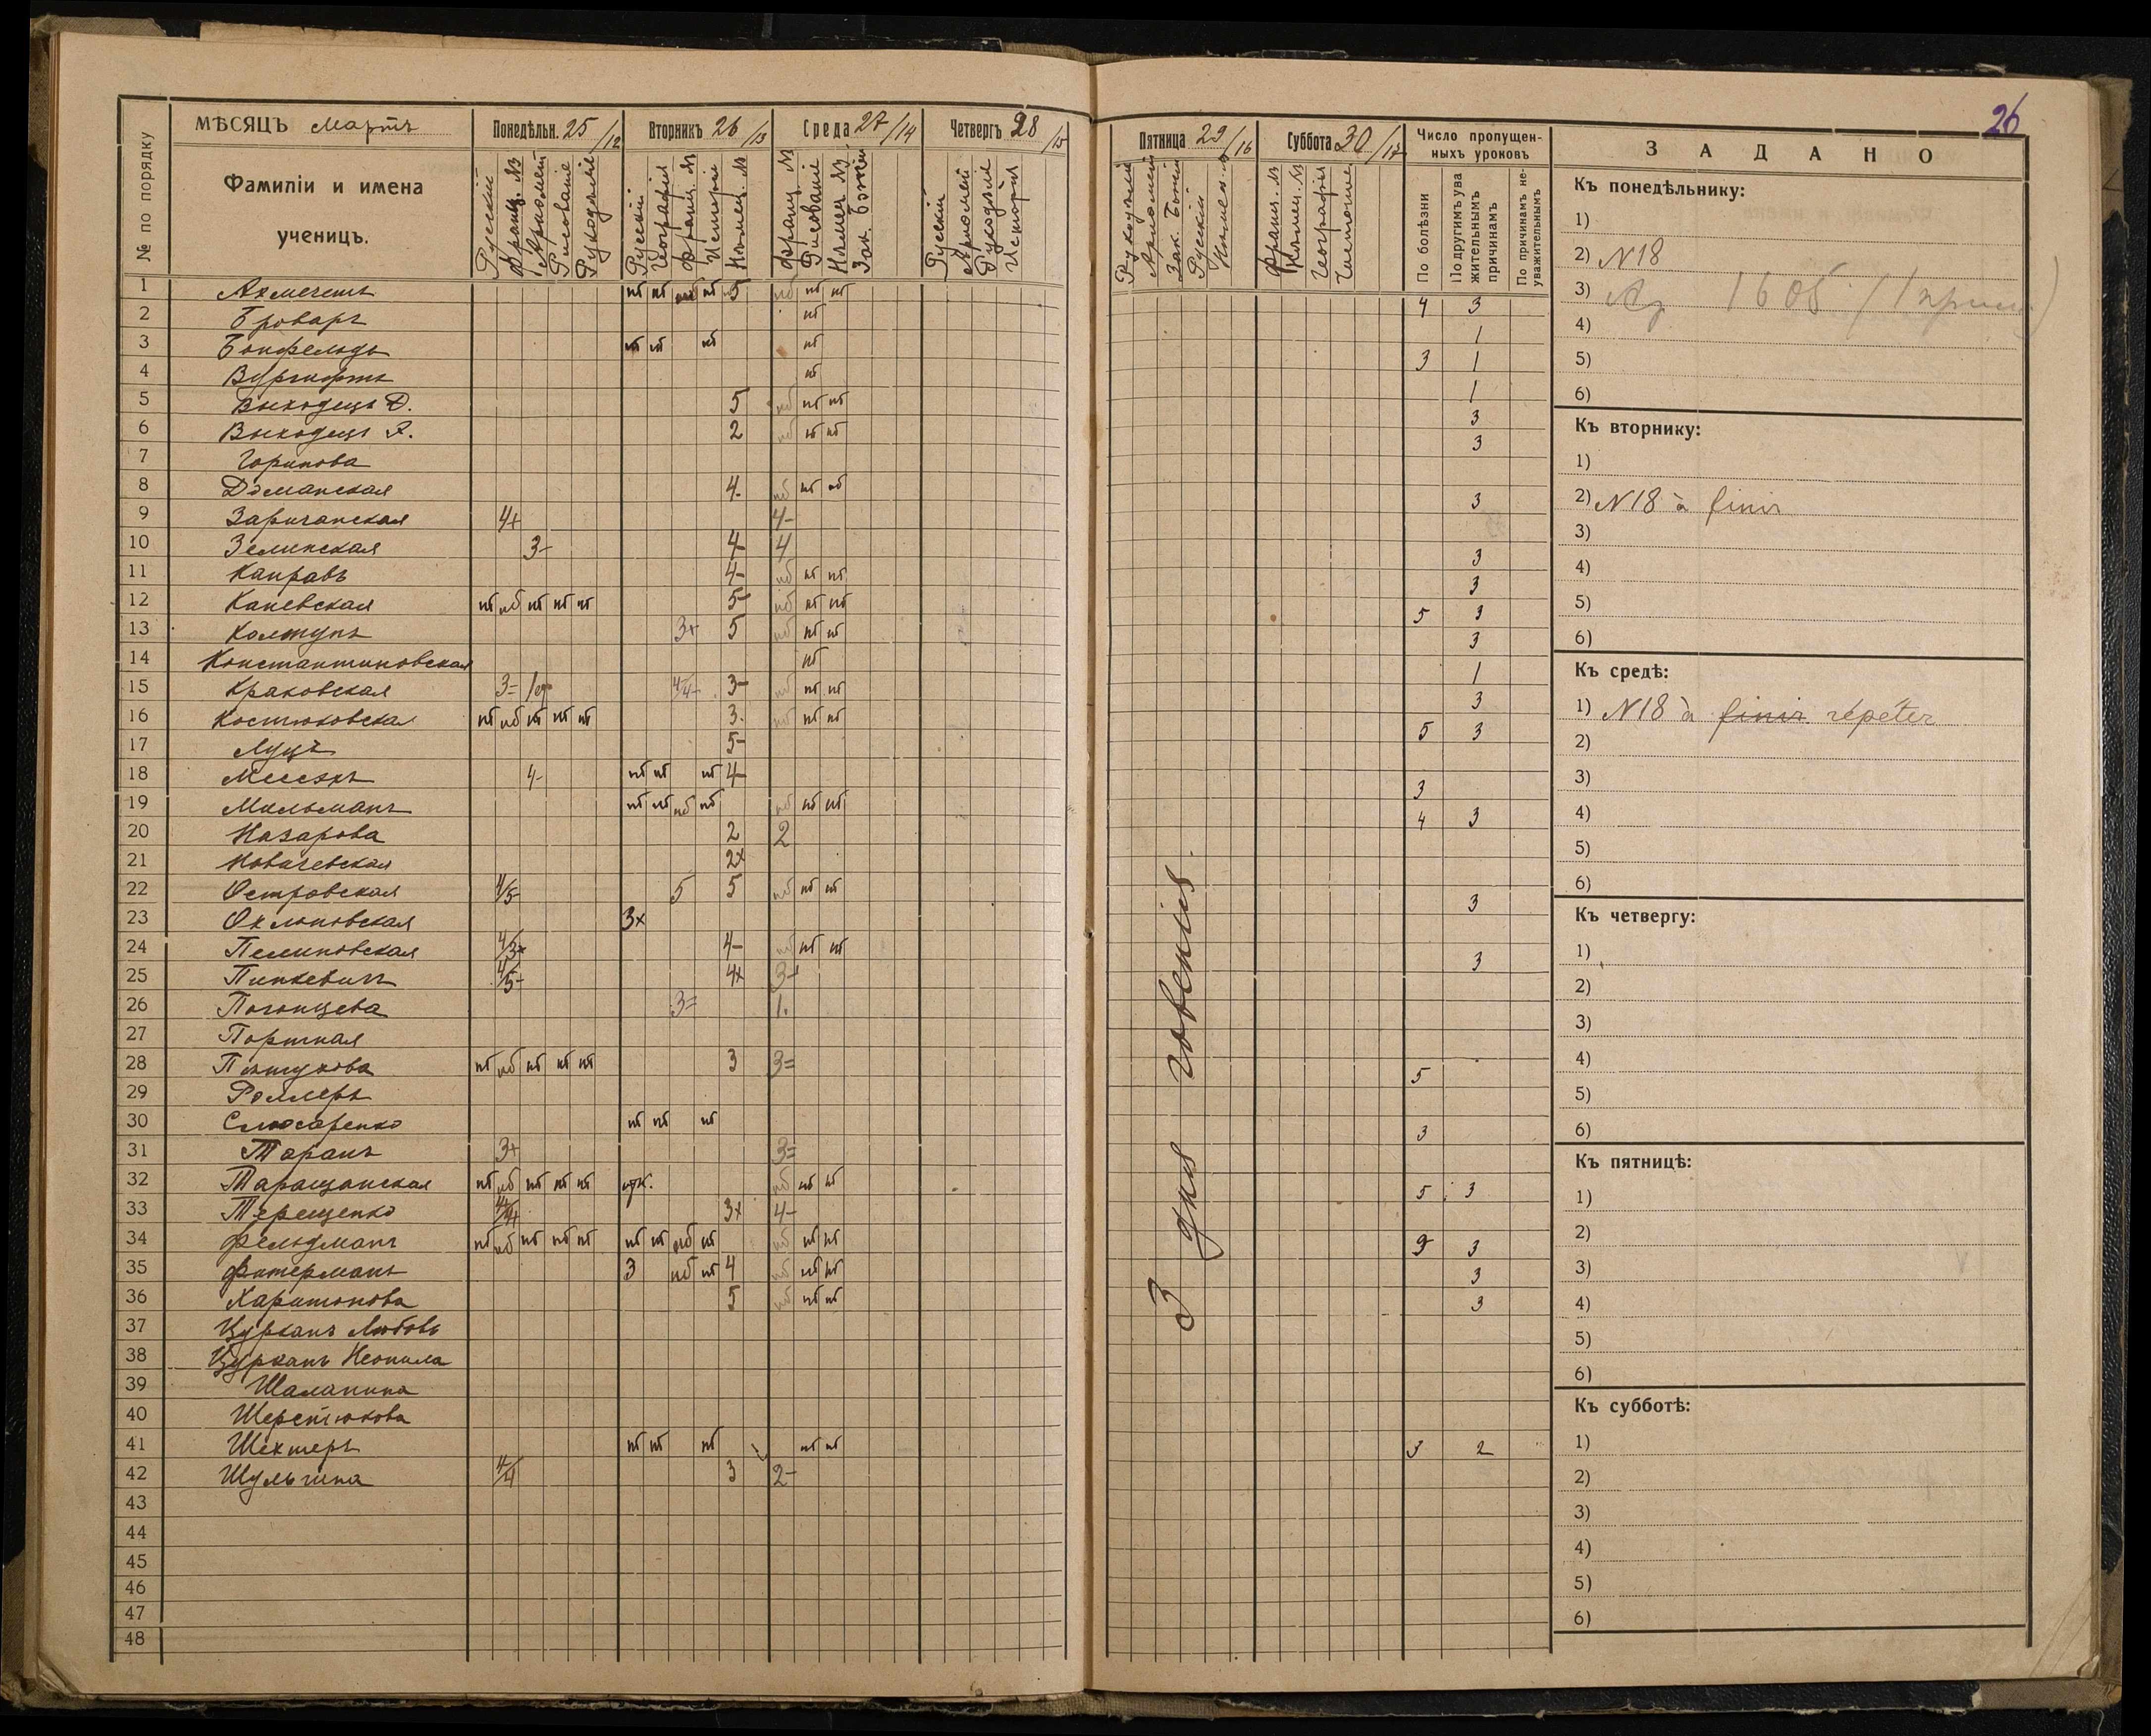 26
№ по порядку
МѢСЯЦЪ Мартъ
Фамиліи и имена
ученицъ.
Понедѣльн. 25/12
Русскій
Франц. яз
Рисованіе
Рукодѣліе
Вторникъ 26/13
Русскій
Географія
Франц. яз
Исторія
Нѣмец. яз
Среда 27/14
Франц. яз
Рисованіе
Нѣмец. яз
Зак. Божій
Четвергъ 28/15
Русскій
Рукодѣліе
Исторія
Пятница 29/16
Рукодѣліе
Зак. Божій
Русскій
Суббота 30/17
Франц. яз
Нѣмец. яз
Географія
Число пропущен-
ныхъ уроковъ
По болѣзни
По другимъ ува
жительнымъ
причинамъ
По причинамъ не-
уважительнымъ
1 Ахмечетъ нб нб нб нб 5 нб нб нб 4 3
2 Броваръ нб 1
3 нб нб нб нб 3 1
4 нб 1
5 Выходецъ Д. 5 нб нб нб 3
6 Выходецъ Р. 2 нб нб нб 3
7 Горинова
8 Доманская 4- нб нб нб 3
9 Заричанская 4+ 4-
10 Зелинская 3- 4- 4 3
11 Каправъ 4- нб нб нб 3
12 Каневская нб нб нб нб нб 5- нб нб нб 5 3
13 Колтунъ 3+ 5 нб нб нб 3
14 Константиновская нб 1
15 Краковская 3= 3- нб нб нб 3
16 Костюковска нб нб нб нб нб 3. нб нб нб 5 3
17 Луцъ 5-
18 4- нб нб нб 4- 3
19 Мильманъ нб нб нб нб нб нб нб 4 3
20 Назарова 2 2
21 Новачевская 2+
22 Островская 4/5- 5 5 нб нб нб 3
23 Оклоповская 3+
24 Пелиновская 4/3+ 4- нб нб нб 3
25 Пинкевичъ 4/5- 4+ 3+
26 Погонцева 3= 1.
27 Портная
28 нб нб нб нб нб 3 3= 5
29 Роллеръ
30 Слюсаренко нб нб нб 3
31 Таранъ 3+ 3=
32 Таращанская нб нб нб нб нб нб нб нб 5 3
33 Терещенко 4/4+ 3+ 4-
34 Фельдманъ нб нб нб нб нб нб нб нб нб нб нб нб 9 3
35 Фитерманъ 3 нб нб 4 нб нб нб 3
36 Харитонова 5 нб нб нб 3
37 Цурканъ Любовь
38 Цурканъ Неонила
39 Шаланина
40 Шерстюкова
41 Шехтеръ нб нб нб нб нб 3 2
42 Шульгина 4/4 3 2-
43
44
45
46
47
48
3 дня говѣнія.
ЗАДАНО
Къ понедѣльнику:
1)
2) N18
3)
4)
5)
6)
Къ вторнику:
1)
2) N18 à finir
3)
4)
5)
6)
Къ средѣ:
1) N18 à finir répéter
2)
3)
4)
5)
6)
Къ четвергу:
1)
2)
3)
4)
5)
6)
Къ пятницѣ:
1)
2)
3)
4)
5)
6)
Къ субботѣ:
1)
2)
3)
4)
5)
6)